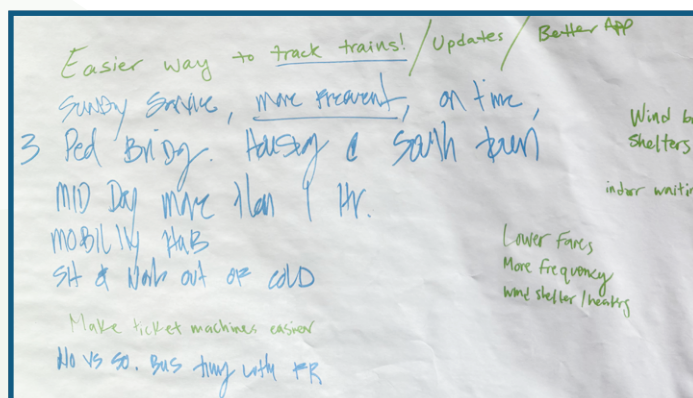 Easier way to track trains! / Updates / Better App
Sunday Service, more frequent, on time,
3 Ped Bridg. Housing @ South town
MID Day more than 1 Hr.
MOBILITY HUB
Sit & Work out of COLD
Make ticket machines easier
No vs So. Bus timing with FR
Wind b
Shelters
indoor waitin
Lower Fares
More frequency
wind shelter/heaters